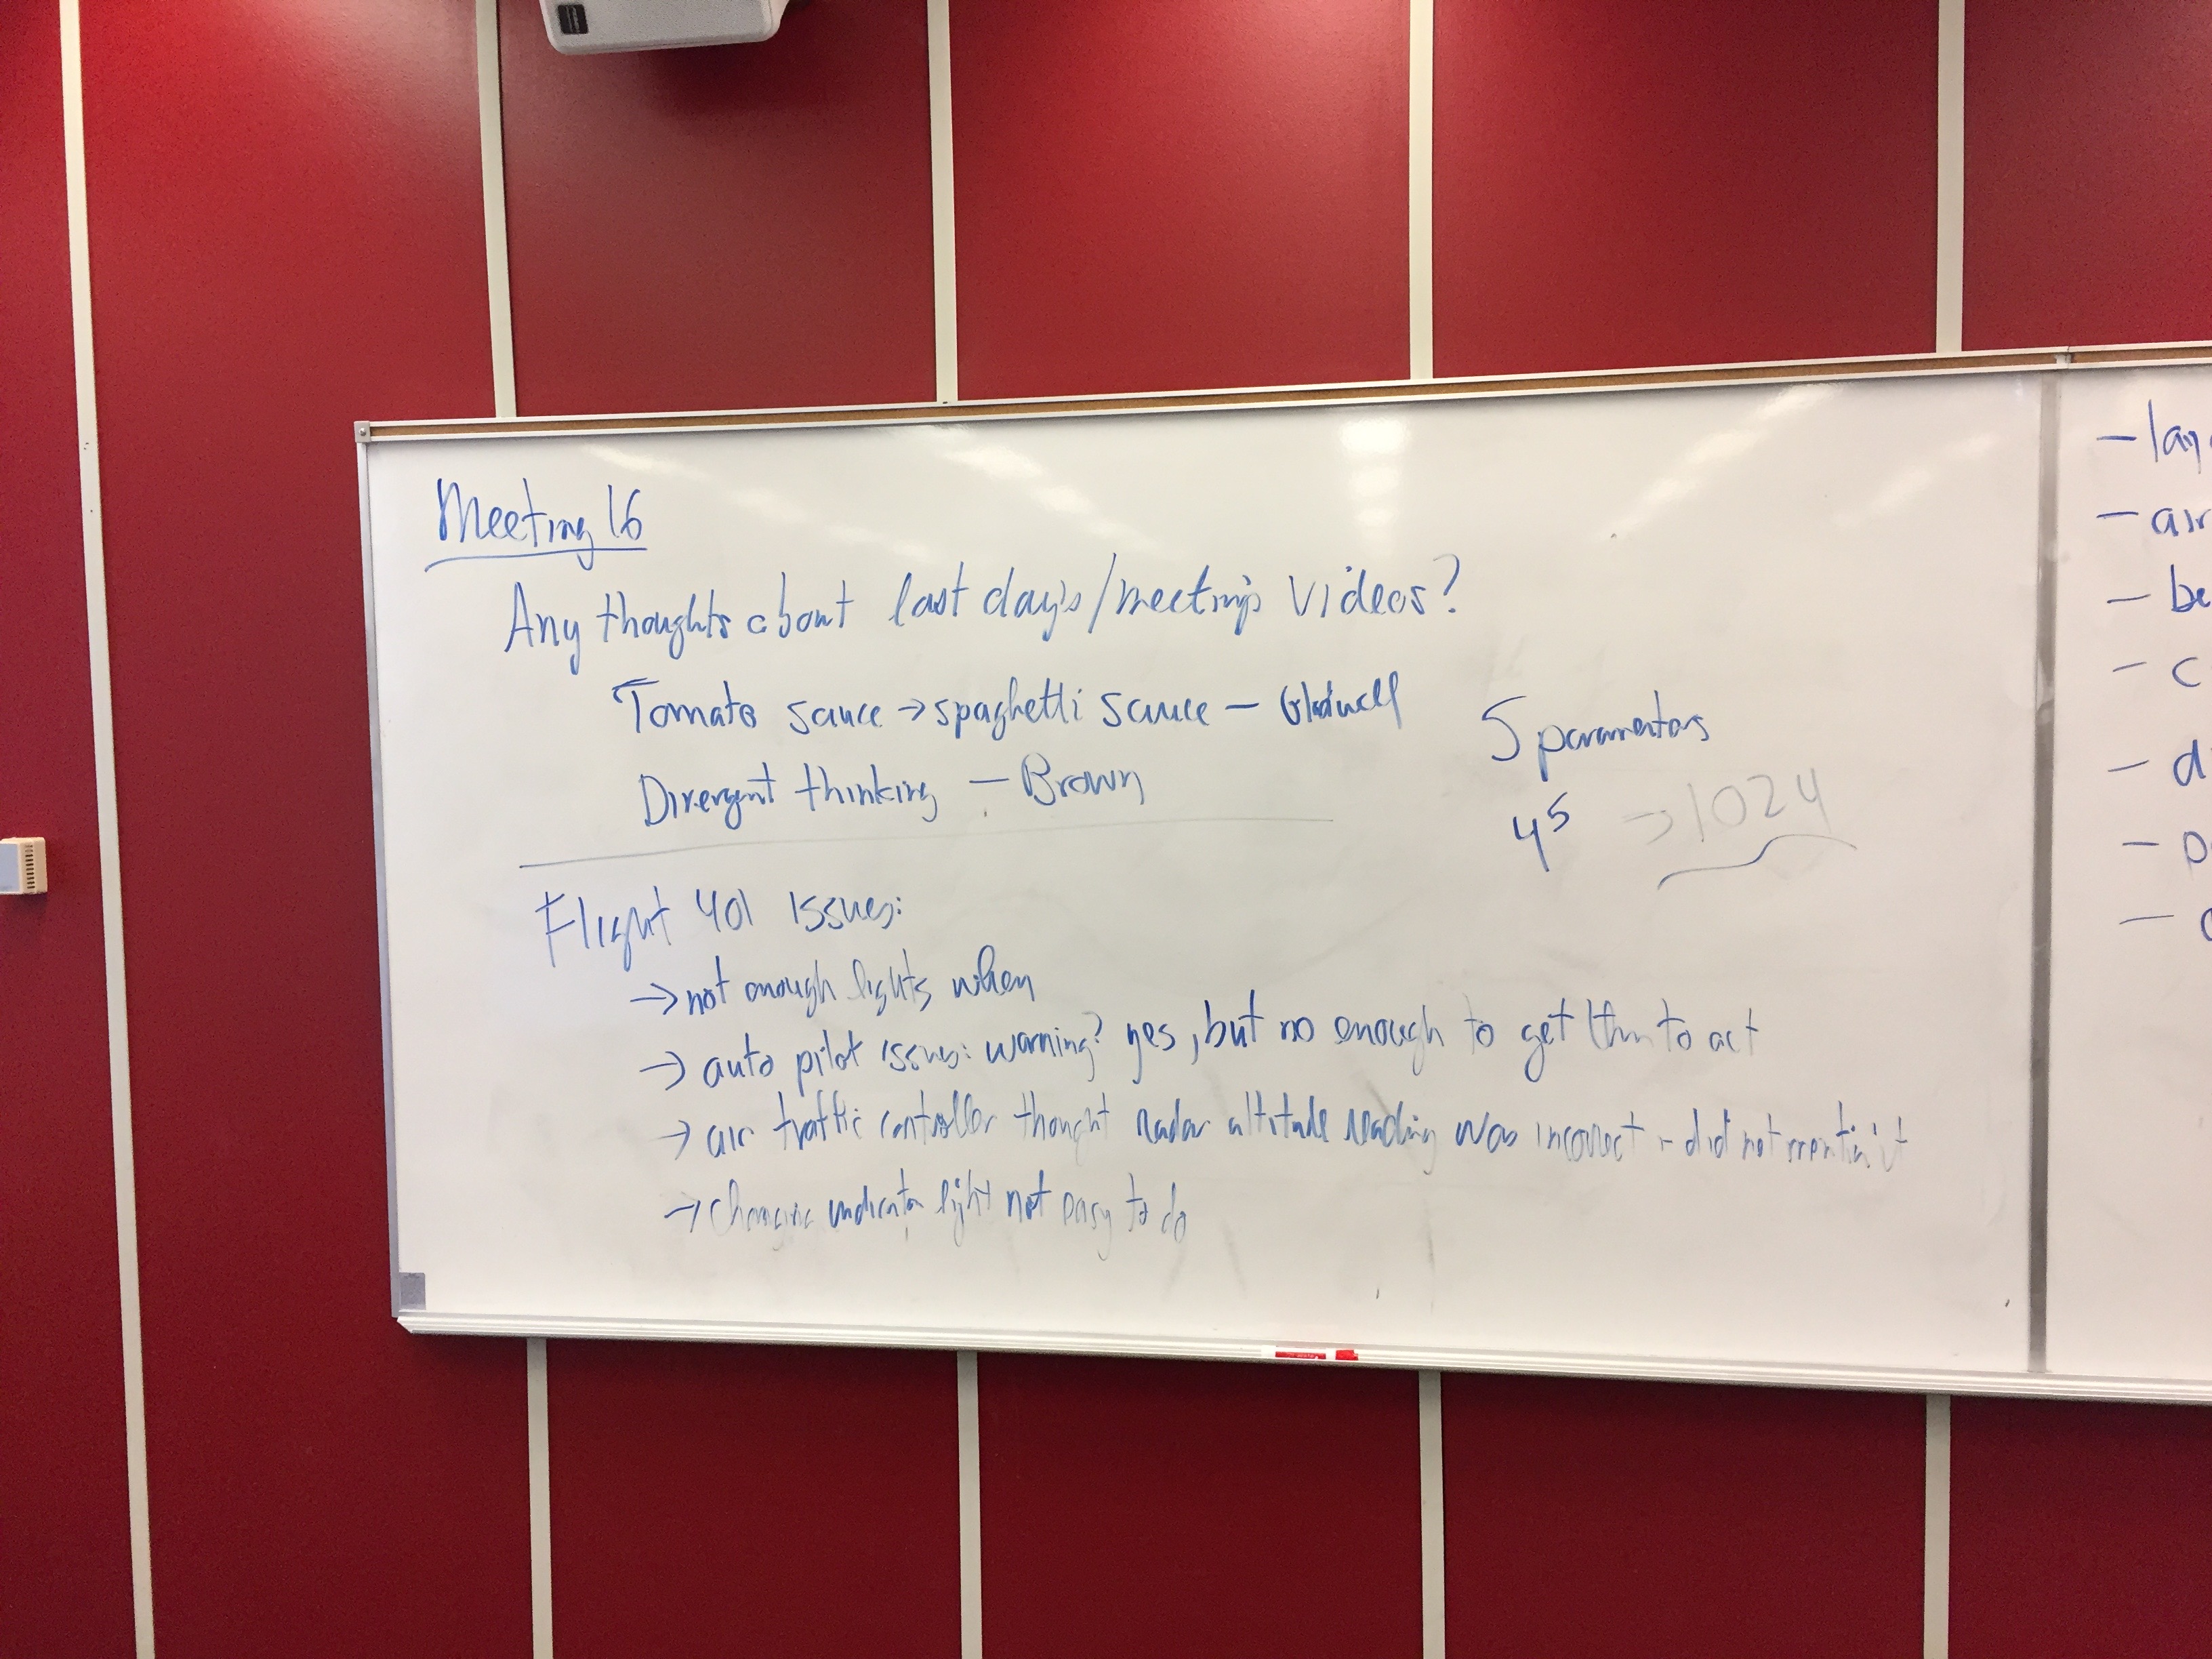 Meeting 16
Any thoughts about last day's/meeting's videos?
Tomato sauce → spaghetti sauce – Gladwell
Divergent thinking – Brown
5 paramentars
4⁵ → 1024
Flight 401 issues:
→ not enough lights when
→ auto pilot issues: warning? yes, but no enough to get them to act
→ air traffic controller thought radar altitude reading was incorrect - did not mention it
→ changing indicator light not easy to do
– lay
– air
– be
– c
– di
– p
–